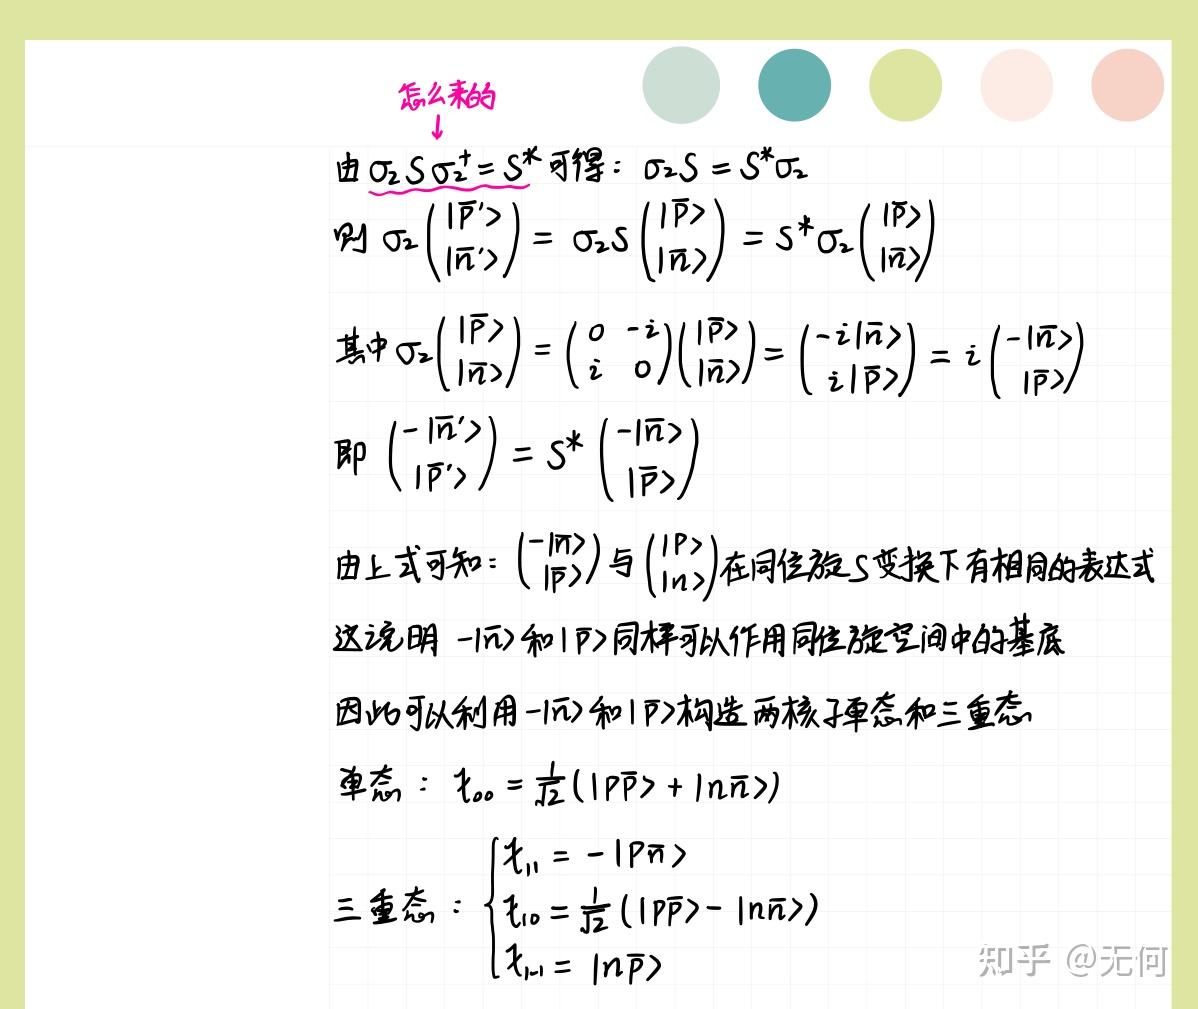 怎么来的
↓
由 σ₂Sσ₂⁺ = S* 可得： σ₂S = S*σ₂
则 σ₂(|p̄′> |n̄′>) = σ₂S(|p̄> |n̄>) = S*σ₂(|p̄> |n̄>)
其中 σ₂(|p̄> |n̄>) = (0 -i i 0)(|p̄> |n̄>) = (-i|n̄> i|p̄>) = i(-|n̄> |p̄>)
即 (-|n̄′> |p̄′>) = S*(-|n̄> |p̄>)
由上式可知：(-|n̄> |p̄>)与(|p> |n>)在同位旋S变换下有相同的表达式
这说明 -|n̄>和|p̄>同样可以作用同位旋空间中的基底
因此可以利用-|n̄>和|p̄>构造两核子单态和三重态
单态： t₀₀ = 1/√2 (|pp̄> + |nn̄>)
三重态： { t₁₁ = -|pn̄>
t₁₀ = 1/√2 (|pp̄> - |nn̄>)
t₁₋₁ = |np̄>
知乎 @无何